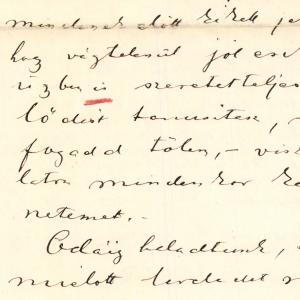 mindenek előtt
hogy végtelenül jól es
ízben is szeretetteljes
lődést tanusitasz, -
fogadd tőlem, - vis
latom mindenkor
netemet. -
Odáig haladtunk,
mielőtt